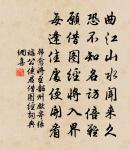 曲江山水聞来久
恐不知名訪倍難
願借圖經將入界
每逢佳處便開看
韓愈將至韶州先寄張
端公使君借圖經